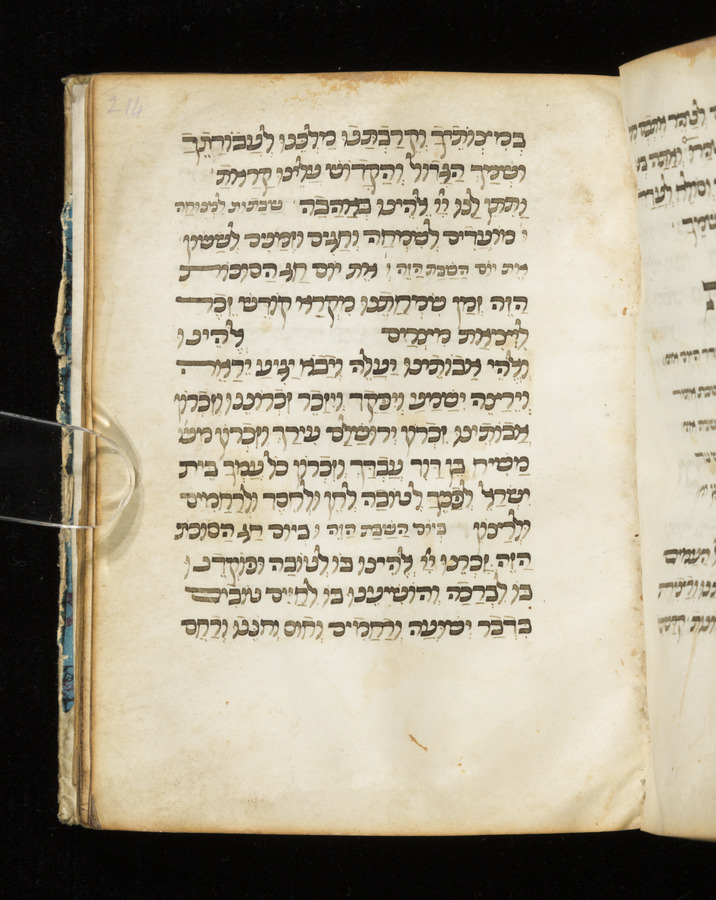 במיצותיך וקרבתנו מלכנו לעבודתך
ושמך הגדול והקדוש עלינו קראת
ותתן לנו יי אלהינו באהבה שבתות למנוחה
ו מועדים לשמחה וחגים וזמנים לששון
את יום השבת הזה ו את יום חג הסוכות
הזה זמן שמחתנו מקרא קודש זכר
ליציאת מיצרים אלהינו
ואלהי אבותינו יעלה ויבא יגיע יראה
וירצה ישמע ויפקד ויזכר זכרוננו וזכרון
אבותינו זכרון ירושלם עירך וזכרון מש
משיח בן דוד עבדך וזכרון כל עמך בית
ישראל לפניך לטובה לחן ולחסד ולרחמים
ולרצון ביום השבת הזה ו ביום חג הסוכת
הזה זכרנו יי אלהינו בו לטובה ופוקדנו
בו לברכה והושיענו בו לחיים טובים
בדבר ישועה ורחמים וחוס וחננו ורחם
214